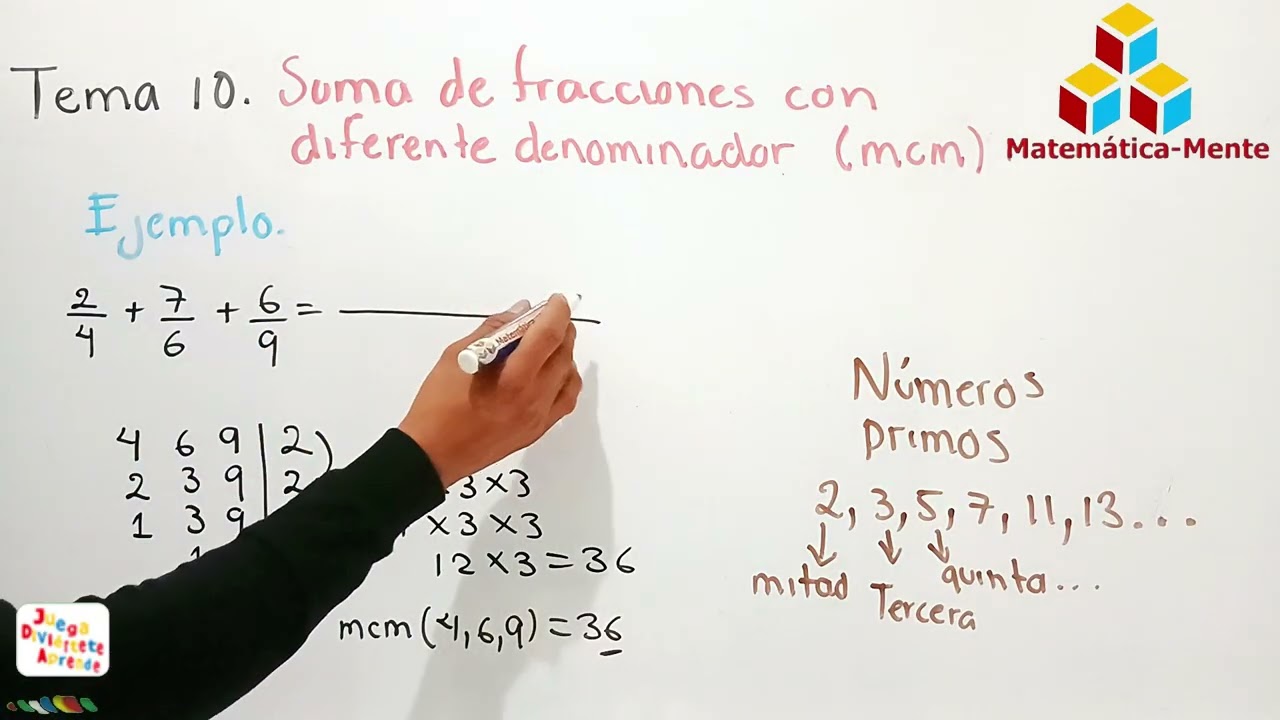 Tema 10. Suma de fracciones con
diferente denominador (mcm)
Matemática-Mente
Ejemplo.
2/4 + 7/6 + 6/9 =
4 6 9 | 2
2 3 9 | 2
1 3 9
×3×3
×3×3
12×3=36
mcm(4,6,9)=36
Números
primos
2, 3, 5, 7, 11, 13...
mitad Tercera quinta...
Juega
Diviértete
Aprende